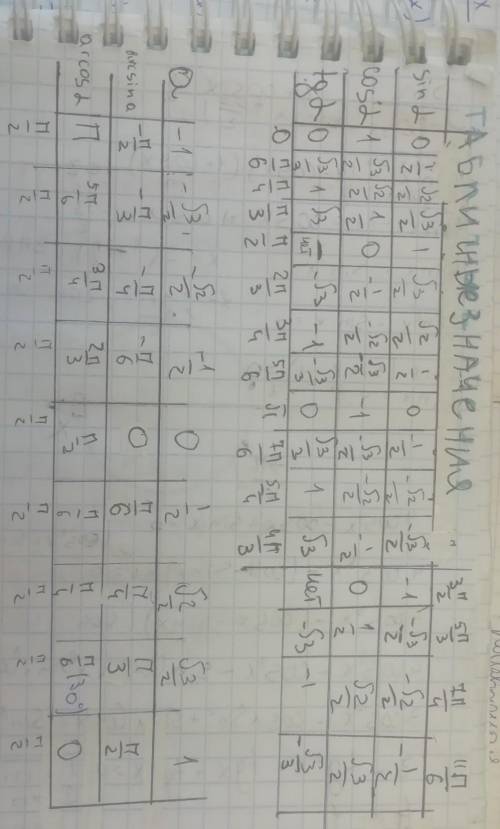 ТАБЛИЧНЫЕ ЗНАЧЕНИЯ
0 π/6 π/4 π/3 π/2 2π/3 3π/4 5π/6 π 7π/6 5π/4 4π/3 3π/2 5π/3 7π/4 11π/6
sin α 0 1/2 √2/2 √3/2 1 √3/2 √2/2 1/2 0 -1/2 -√2/2 -√3/2 -1 -√3/2 -√2/2 -1/2
cos α 1 √3/2 √2/2 1/2 0 -1/2 -√2/2 -√3/2 -1 -√3/2 -√2/2 -1/2 0 1/2 √2/2 √3/2
tg α 0 √3/3 1 √3 нет -√3 -1 -√3/3 0 √3/3 1 √3 нет -√3 -1 -√3/3
a -1 -√3/2 -√2/2 -1/2 0 1/2 √2/2 √3/2 1
arcsin a -π/2 -π/3 -π/4 -π/6 0 π/6 π/4 π/3 π/2
arccos α π 5π/6 3π/4 2π/3 π/2 π/6 π/4 π/6 (30°) 0
π/2 π/2 π/2 π/2 π/2 π/2 π/2 π/2 π/2